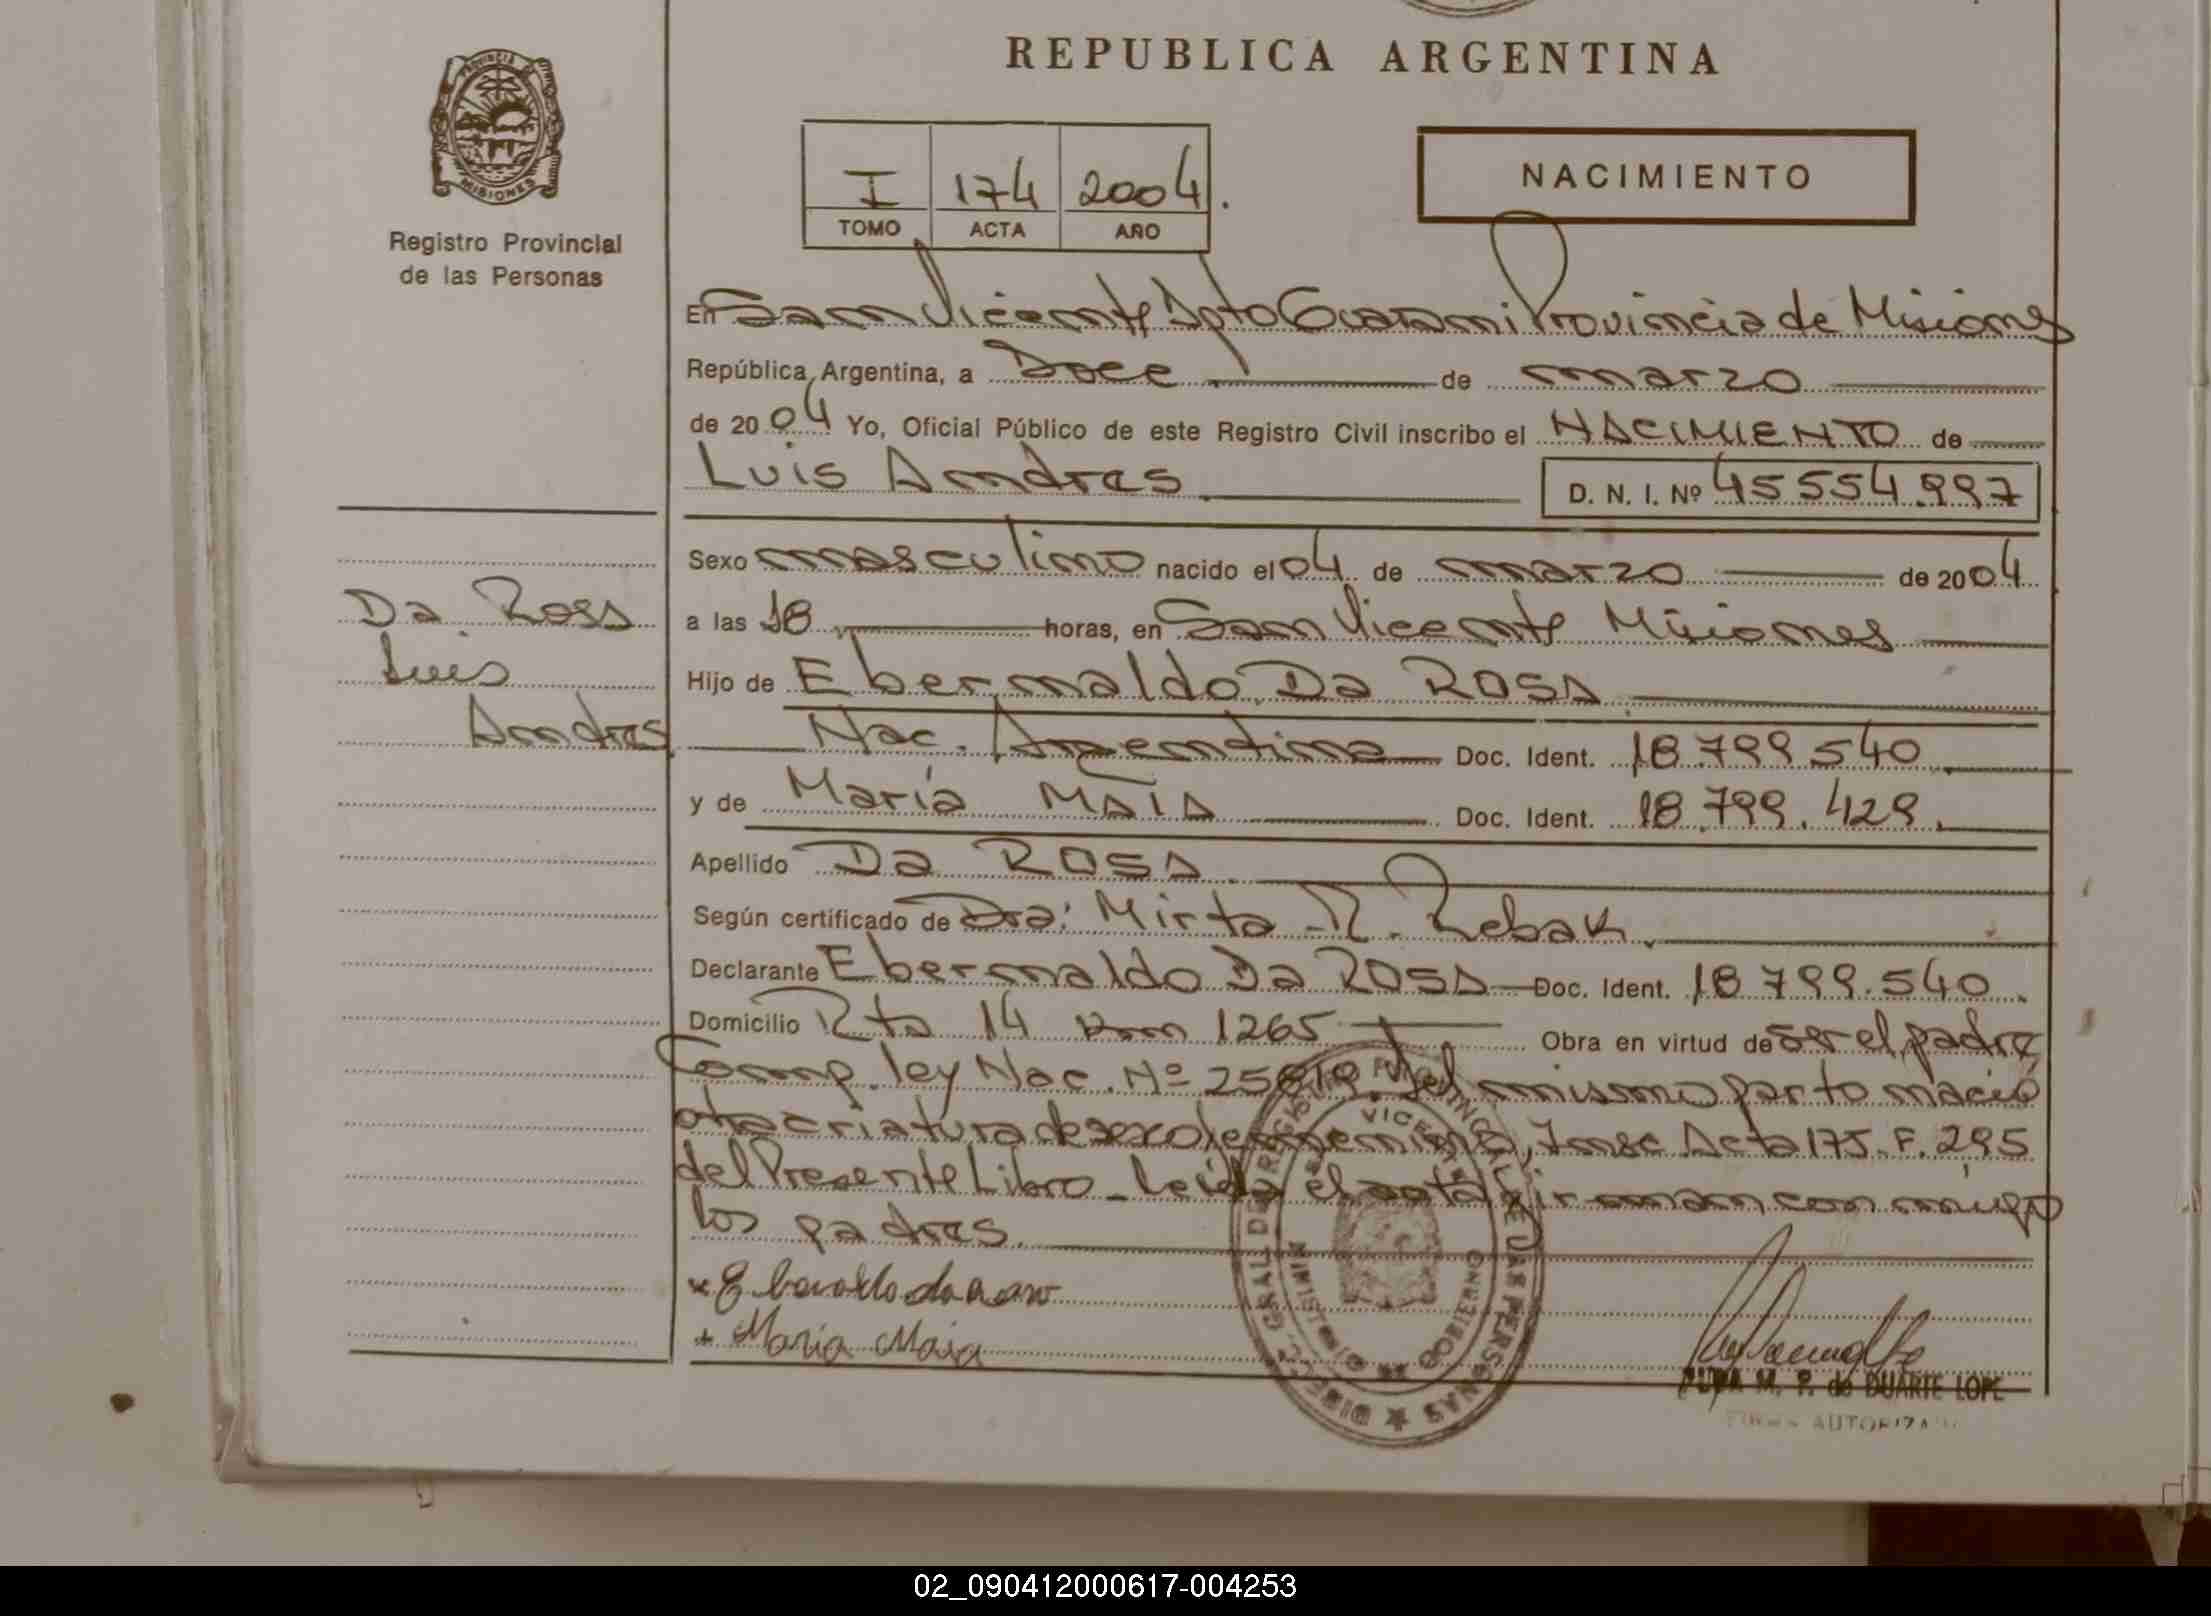 REPUBLICA ARGENTINA
PROVINCIA DE
MISIONES
Registro Provincial
de las Personas
I 174 2004.
TOMO ACTA AÑO
NACIMIENTO
En San Vicente Dpto Guarani Provincia de Misiones
República Argentina, a Doce de marzo
de 2004 Yo, Oficial Público de este Registro Civil inscribo el NACIMIENTO de
Luis Andres D. N. I. Nº 45554.997
Sexo masculino nacido el 04 de marzo de 2004
a las 18 horas, en San Vicente Misiones
Hijo de Ebernaldo Da Rosa
Nac. Argentina Doc. Ident. 18.799.540
y de María MAIA Doc. Ident. 18.799.429.
Apellido Da Rosa
Según certificado de Dra: Mirta R. Rebak.
Declarante Ebernaldo Da Rosa Doc. Ident. 18799.540.
Domicilio Rta 14 Km 1265 Obra en virtud de ser el padre
Comp. ley Nac. Nº 25819. Del mismo parto nació
otra criatura de sexo femenino, Insc. Acta 175. F. 295
del Presente Libro_ Leída el acta firman con migo
los padres.
Da Rosa
Luis
Andres
x Eberaldo da rosa
+ Maria Maia
M. P. de DUARTE LOPE
AUTORIZA
02_090412000617-004253